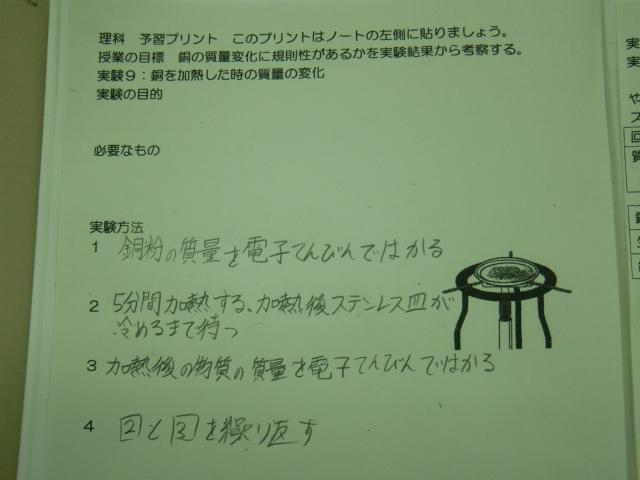 理科　予習プリント　このプリントはノートの左側に貼りましょう。
授業の目標　銅の質量変化に規則性があるかを実験結果から考察する。
実験９：銅を加熱した時の質量の変化
実験の目的
必要なもの
実験方法
1 銅粉の質量を電子てんびんではかる
2 5分間加熱する、加熱後ステンレス皿が
冷めるまで待つ
3 加熱後の物質の質量を電子てんびんではかる
4 2と3を繰り返す